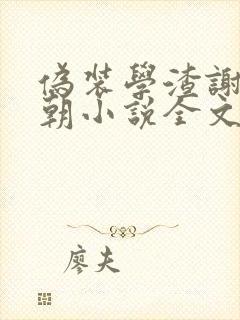 偽裝學渣謝
朝小說全文
廖夫